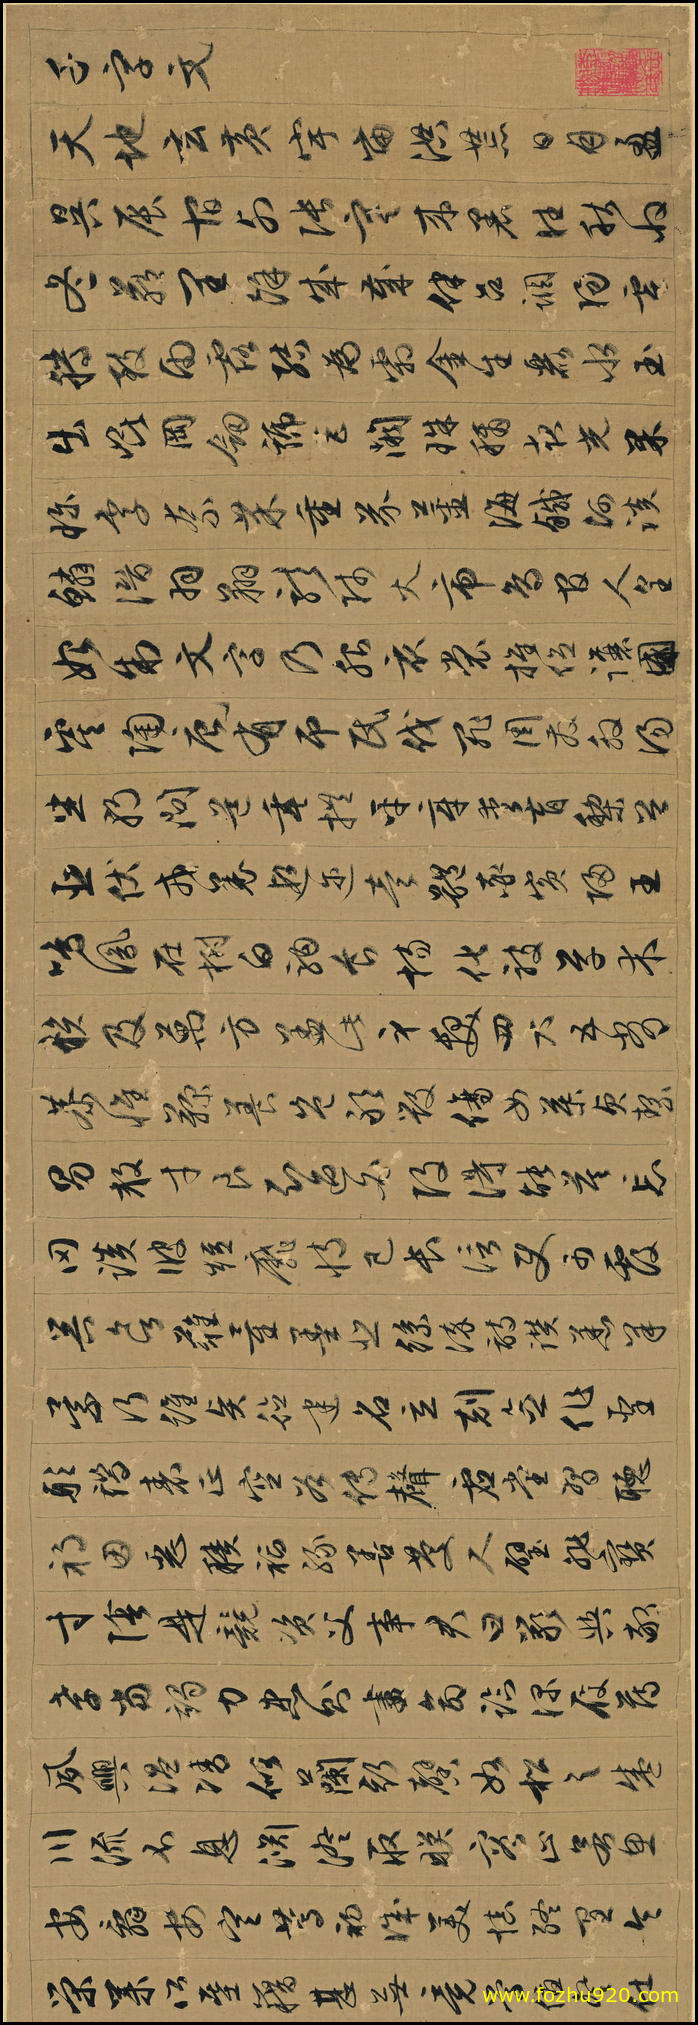 千字文
天地玄黃宇宙洪荒日月盈
昃辰宿列張寒來暑往秋收
冬藏閏餘成歲律呂調陽雲
騰致雨露結為霜金生麗水玉
出崑岡劍號巨闕珠稱夜光果
珍李柰菜重芥薑海鹹河淡
鱗潛羽翔龍師火帝鳥官人皇
始制文字乃服衣裳推位讓國
虞陶唐有弔民伐罪周發殷湯
坐朝問道垂拱平章愛育黎首
臣伏戎羌遐邇壹體率賓歸王
鳴鳳在樹白駒食場化被草木
賴及萬方蓋此身髮四大五常
恭惟鞠養豈敢毀傷女慕貞潔
男效才良知過必改得能莫忘
罔談彼短靡恃己長信使可覆
器欲難量墨悲絲染詩讚羔羊
景行維賢德建名立剋念作聖
形端表正空谷傳聲虛堂習聽
禍因惡積福緣善慶尺璧非寶
寸陰是競資父事君曰嚴與敬
孝當竭力忠則盡命臨深履薄
夙興溫凊似蘭斯馨如松之盛
川流不息淵澄取映容止若思
言辭安定篤初誠美慎終宜令
榮業所基籍甚無竟學優登仕
www.fozhu920.com